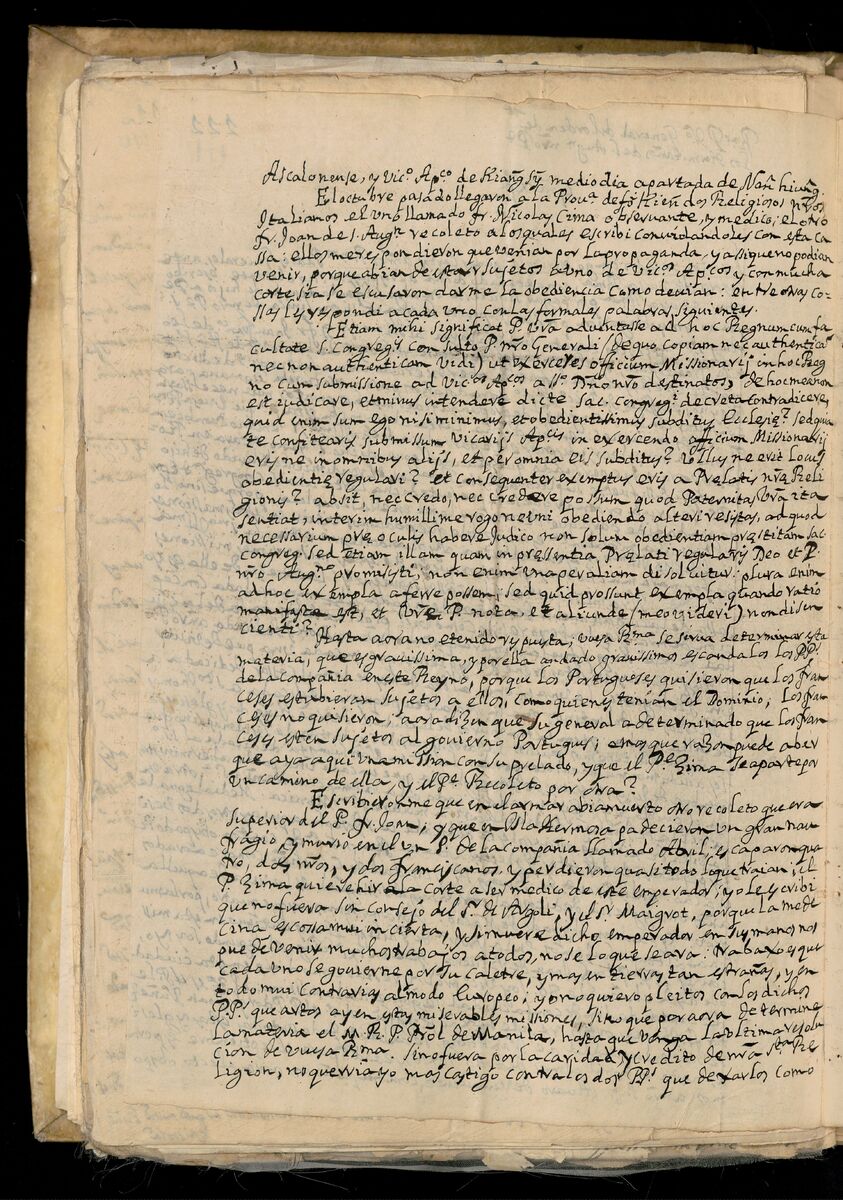 Ascalonense, y Vic.º Ap.co de Kiang Sy mediodia apartada de Nan hiung.
El octubre pasado llegaron a la Prov.ª de fo Kien dos Religiosos nr̃os
Italianos el uno llamado fr. Nicolas Cima observante, y medico; el otro
fr. Joan de S. Aug.n recoleto a los quales escribi convidandoles con esta ca
sa: ellos me respondieron que venian por la propaganda, y assi que no podian
venir, porque abian de estar sujetos a uno de Vic.os Ap.cos y con mucha
cortesia se escusaron darme la obediencia como devian: entre otras co-
sas les respondi a cada uno con las formales palabras siguientes.
Etiam mihi significat P. Vr̃a adventasse ad hoc Regnum cum fa
cultate S. Congreg.s consulto P. nr̃o Generali (de quo copiam nec authenticã
nec non authenticam vidi) ut exerceres officium Missionarij in hoc Reg
no cum submissione ad Vic.os Ap.cos a SS.º Dño nr̃o destinatos, de hoc mea non
est judicare, et minus intendere dictę Sac. Congreg.s decreta contradicere,
quid enim sum ego nisi minimus, et obedientissimus subditus Ecclesię? sed quia
te confitearis submissum Vicarijs Ap.cis in exercendo officium Missionarij
eris ne in omnibus alijs, et per omnia eis subditus? Vllus ne erit locus
obedientię regulari? et consequenter exemptus eris a Pręlatis nr̃ę Reli
gionis? absit, nec credo, nec credere possum quod Paternitas Vr̃a ita
sentiat, interim humillime rogo ne uni obediendo alteri resistas, ad quod
necessarium prę oculis habere judico non solum obedientiam pręstitam sac.
congreg. sed etiam illam quam in pręsentia Pręlati regularis Deo et P.
nr̃o Aug.no promisisti; non enim una per aliam dissolvitur: plura enim
ad hoc exempla aferre possem; sed quid prossunt exempla quando ratio
manifasta est, et Vr̃ę P. nota, et aliunde (meo videri) non disen
cienti?
Hasta aora no e tenido respuesta, vuesa R.ma se sirva determinar esta
materia, que es gravissima, y por ella an dado gravissimos escandalos los PP.s
de la Compañia en este Reyno, porque los Portugueses quisieron que los fran
ceses estubieran sujetos a ellos, como quienes tenian el Dominio; los fran
ceses no quisieron; aora dizen que su general a determinado que los fran
ceses esten sujetos al govierno Portugues; emos que razon puede aber
que aya aqui una mission con su prelado, y que el P.e Zima se aparte por
un camino de ella, y el P.e Recoleto por otra?
Escribieronme que en el armar abia muerto otro recoleto que era
superior del P. fr. Joan, y que en Isla Hermosa padecieron un gran nau
fragio, y murió en el un P. de la compañia llamado Abril, escaparon qua
tro, dos nr̃os, y dos franciscanos, y perdieron quasi todo lo que traian; el
P. Zima quiere hir a la corte a ser medico de este emperador, y o le escribi
que no fuera sin consejo del S.r de Argoli, y el S.r Maigrot, porque la mede
cina es cosa mui incierta, y si muere dicho emperador en sus manos nos
puede venir muchos trabajos a todos, no se lo que se ara: trabaxo es que
cada uno se govierne por su caletre, y mas en tierras tan estrañas, y en
todo mui contrarias al modo Europeo; yo no quiero pleitos con los dichos
P.P.s que artos ay en estas miserables missiones, sino que por aora determine
la materia el M. R. P. Pr̃ol de Manila, hasta que venga la ultima resolu
cion de vuesa R.ma. sino fuera por la caridad, y credito de nr̃a S.ta Re
ligion, no querria yo mas castigo contra los dos PP.s que dexarlos como